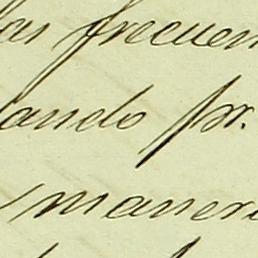 las frecuen
ando pr.
maner